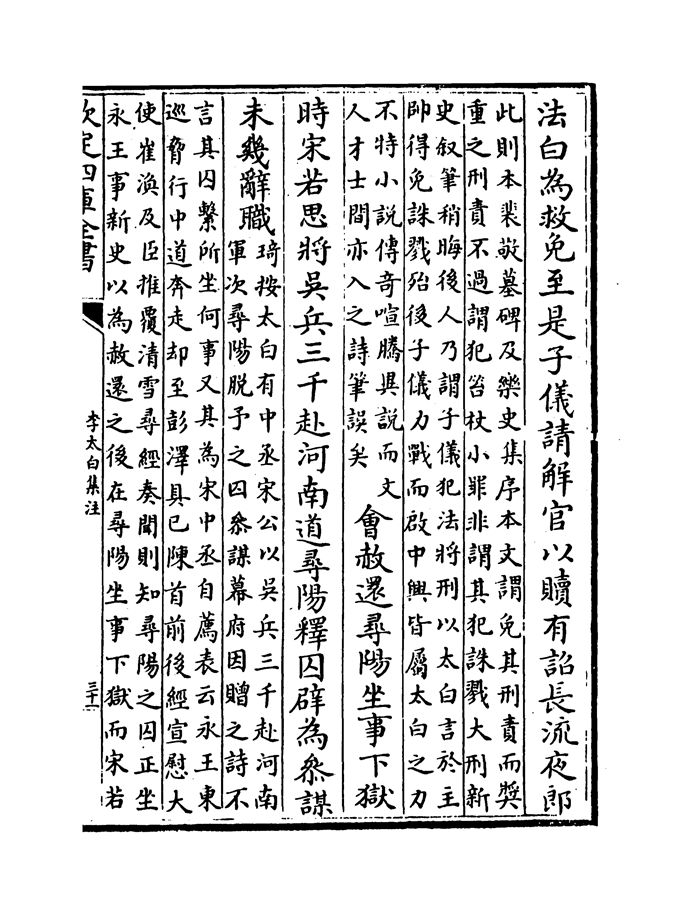 法白為救免至是子儀請解官以贖有詔長流夜郎
此則本裴敬墓碑及樂史集序本文謂免其刑責而奬
重之刑責不過謂犯笞杖小罪非謂其犯誅戮大刑新
史叙筆稍晦後人乃謂子儀犯法將刑以太白言於主
帥得免誅戮殆後子儀力戰而啟中興皆屬太白之力
不特小說傳奇喧騰異說而文
人才士間亦入之詩筆誤矣
會赦還尋陽坐事下獄
時宋若思將吳兵三千赴河南道尋陽釋囚辟為叅謀
未幾辭職
琦按太白有中丞宋公以吳兵三千赴河南
軍次尋陽脱予之囚叅謀幕府因贈之詩不
言其囚繫所坐何事又其為宋中丞自薦表云永王東
巡脅行中道奔走却至彭澤具已陳首前後經宣慰大
使崔渙及臣推覆清雪尋經奏聞則知尋陽之囚正坐
永王事新史以為赦還之後在尋陽坐事下獄而宋若
欽定四庫全書
李太白集注
三十一